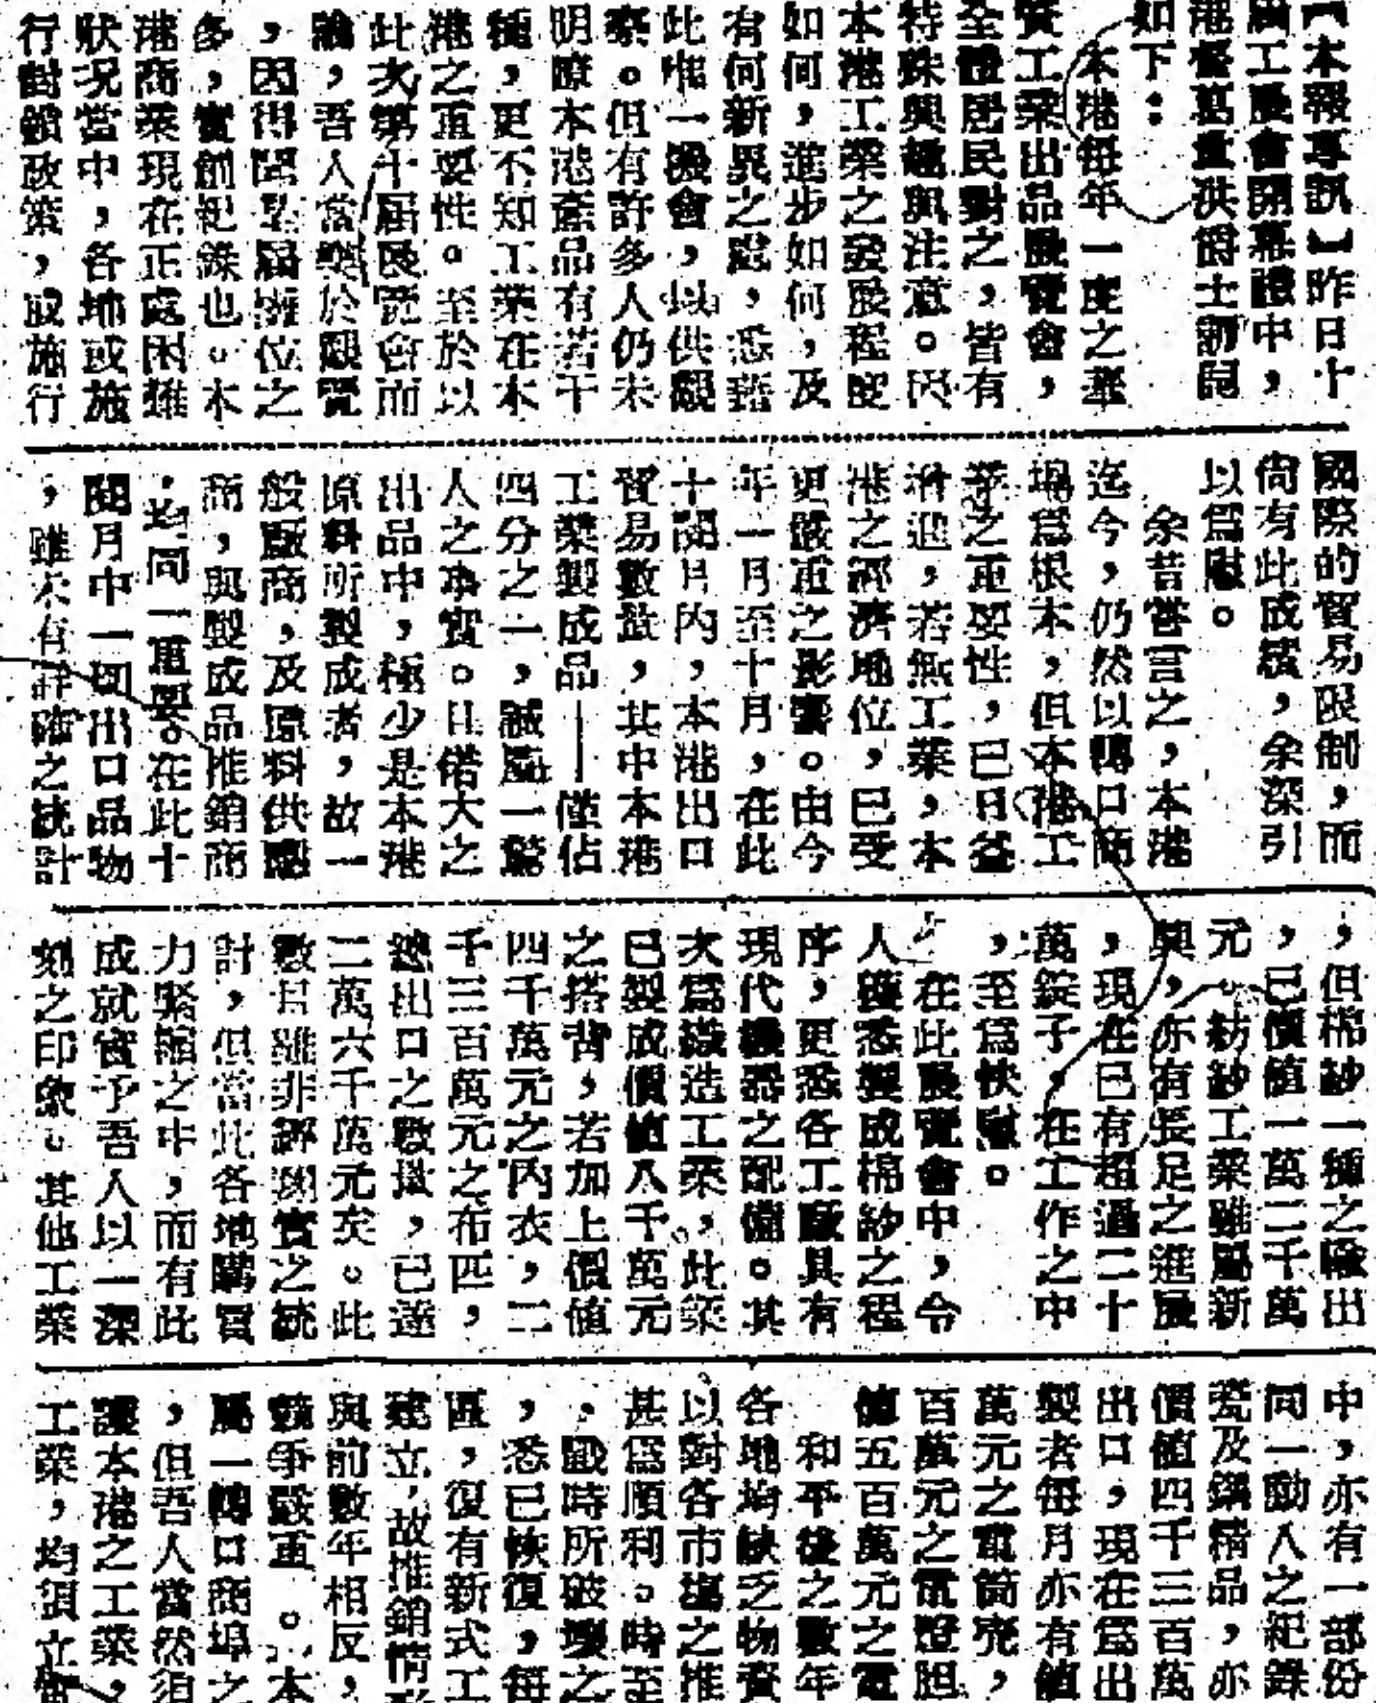 【本報專訊】昨日十
屆工展會開幕禮中，
港督葛量洪爵士訓詞
如下：
本港每年一度之華
資工業出品展覽會，
全體居民對之，皆有
特殊興趣與注意。因
本港工業之發展程度
如何，進步如何，及
有何新異之處，悉藉
此唯一機會，以供觀
察。但有許多人仍未
明瞭本港產品有若干
種，更不知工業在本
港之重要性。至於以
此次第十屆展覽會而
論，吾人當樂於觀覽
，因得開空屆擁位之
多，實創紀錄也。本
港商業現在正處困難
狀况當中，各地或施
行對鎖政策，或施行
國際的貿易限制，而
尚有此成績，余深引
以爲慰。
余昔嘗言之，本港
迄今，仍然以轉口商
場爲根本，但本港工
業之重要性，已日益
增進，若無工業，本
港之經濟地位，已受
更嚴重之影響。由今
年一月至十月，在此
十閱月內，本港出口
貿易數益，其中本港
工業製成品——僅佔
四分之一，誠屬一驚
人之事實。且偌大之
出品中，極少是本港
原料所製成者，故一
般廠商，及原料供應
商，與製成品推銷商
，均同一重要。在此十
閱月中一切出口品物
，雖未有詳確之統計
，但棉紗一種之輸出
，已價值一萬二千萬
元。紡紗工業雖屬新
興，亦有長足之進展
，現在已有超過二十
萬錠子，在工作之中
，至爲快慰。
在此展覽會中，令
人獲悉製成棉紗之程
序，更悉各工廠具有
現代機器之配備。其
次爲織造工業，此業
已製成價值八千萬元
之搭背，若加上價值
四千萬元之內衣，二
千三百萬元之布匹，
總出口之數量，已達
二萬六千萬元矣。此
數目雖非詳細實之統
計，但當此各地購買
力緊縮之中，而有此
成就實予吾人以一深
刻之印象。其他工業
中，亦有一部份
同一動人之紀錄
瓷及鋼精品，亦
價值四千三百萬
出口，現在爲出
製者每月亦有値
萬元之電筒売，
百萬元之電燈胆
值五百萬元之電
和平後之數年
各地均缺乏物資
以對各市塲之推
甚爲順利。時至
，戰時所破壞之
，悉已恢復，每
區，復有新式工
建立，故推銷情形
與前數年相反，
競爭嚴重。本
屬一轉口商埠之
，但吾人當然須
護本港之工業，
工業，均須立